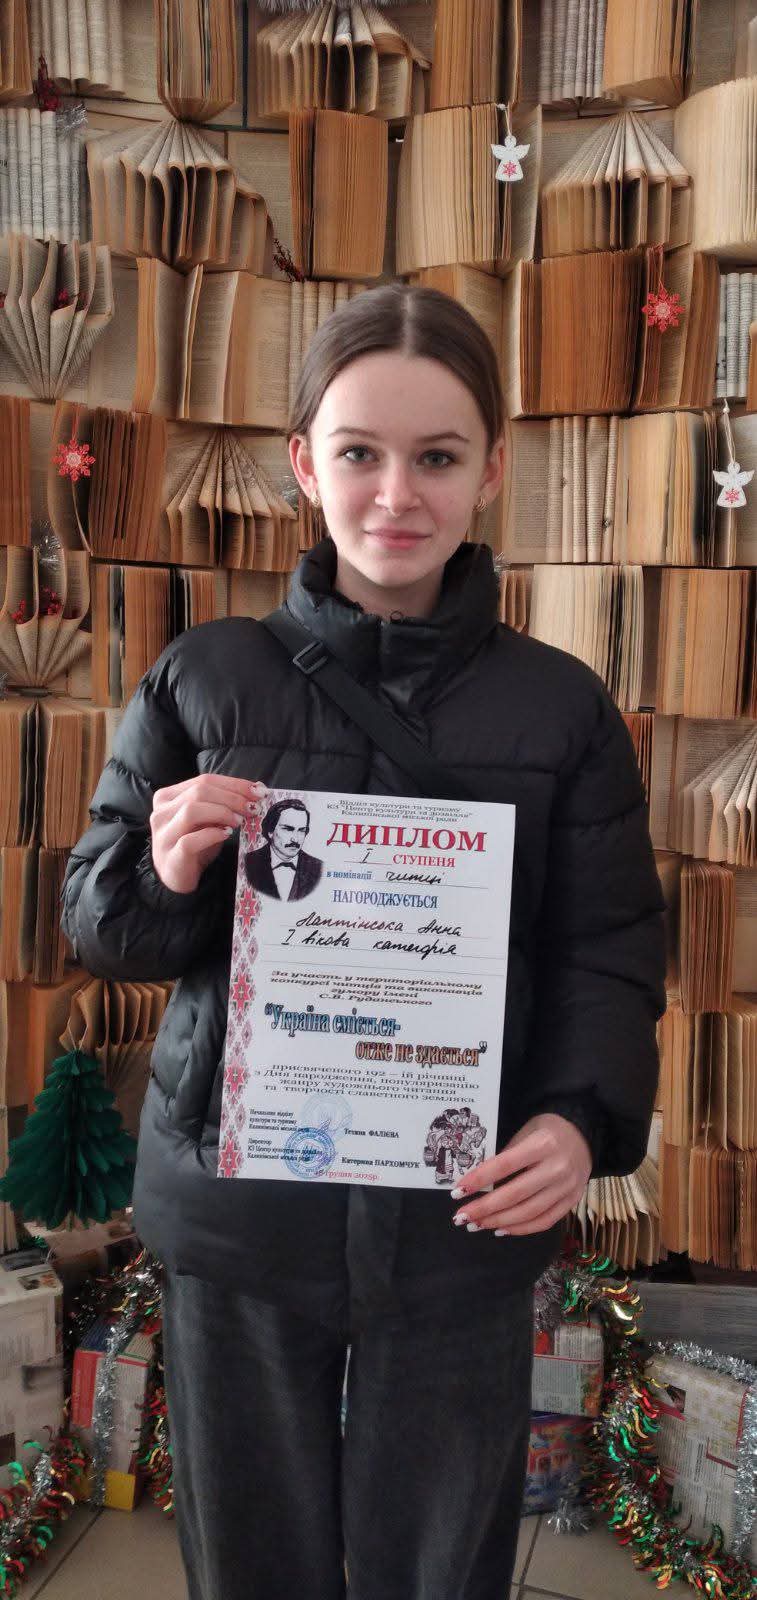 Відділ культури та туризму
КЗ "Центр культури та дозвілля"
Калинівської міської ради
ДИПЛОМ
І СТУПЕНЯ
в номінації читці
НАГОРОДЖУЄТЬСЯ
Лаптінська Анна
І вікова категорія
За участь у територіальному
конкурсі читців та виконавців
гумору імені
С.В. Руданського
"Україна сміється-
отже не здається"
присвяченого 192 – ій річниці
з Дня народження, популяризацію
жанру художнього читання
та творчості славетного земляка
Начальник відділу
культури та туризму
Калинівської міської ради
Тетяна ФАЛІЄВА
Директор
КЗ Центр культури та дозвілля
Калинівської міської ради
Катерина ПАРХОМЧУК
грудня 2025р.